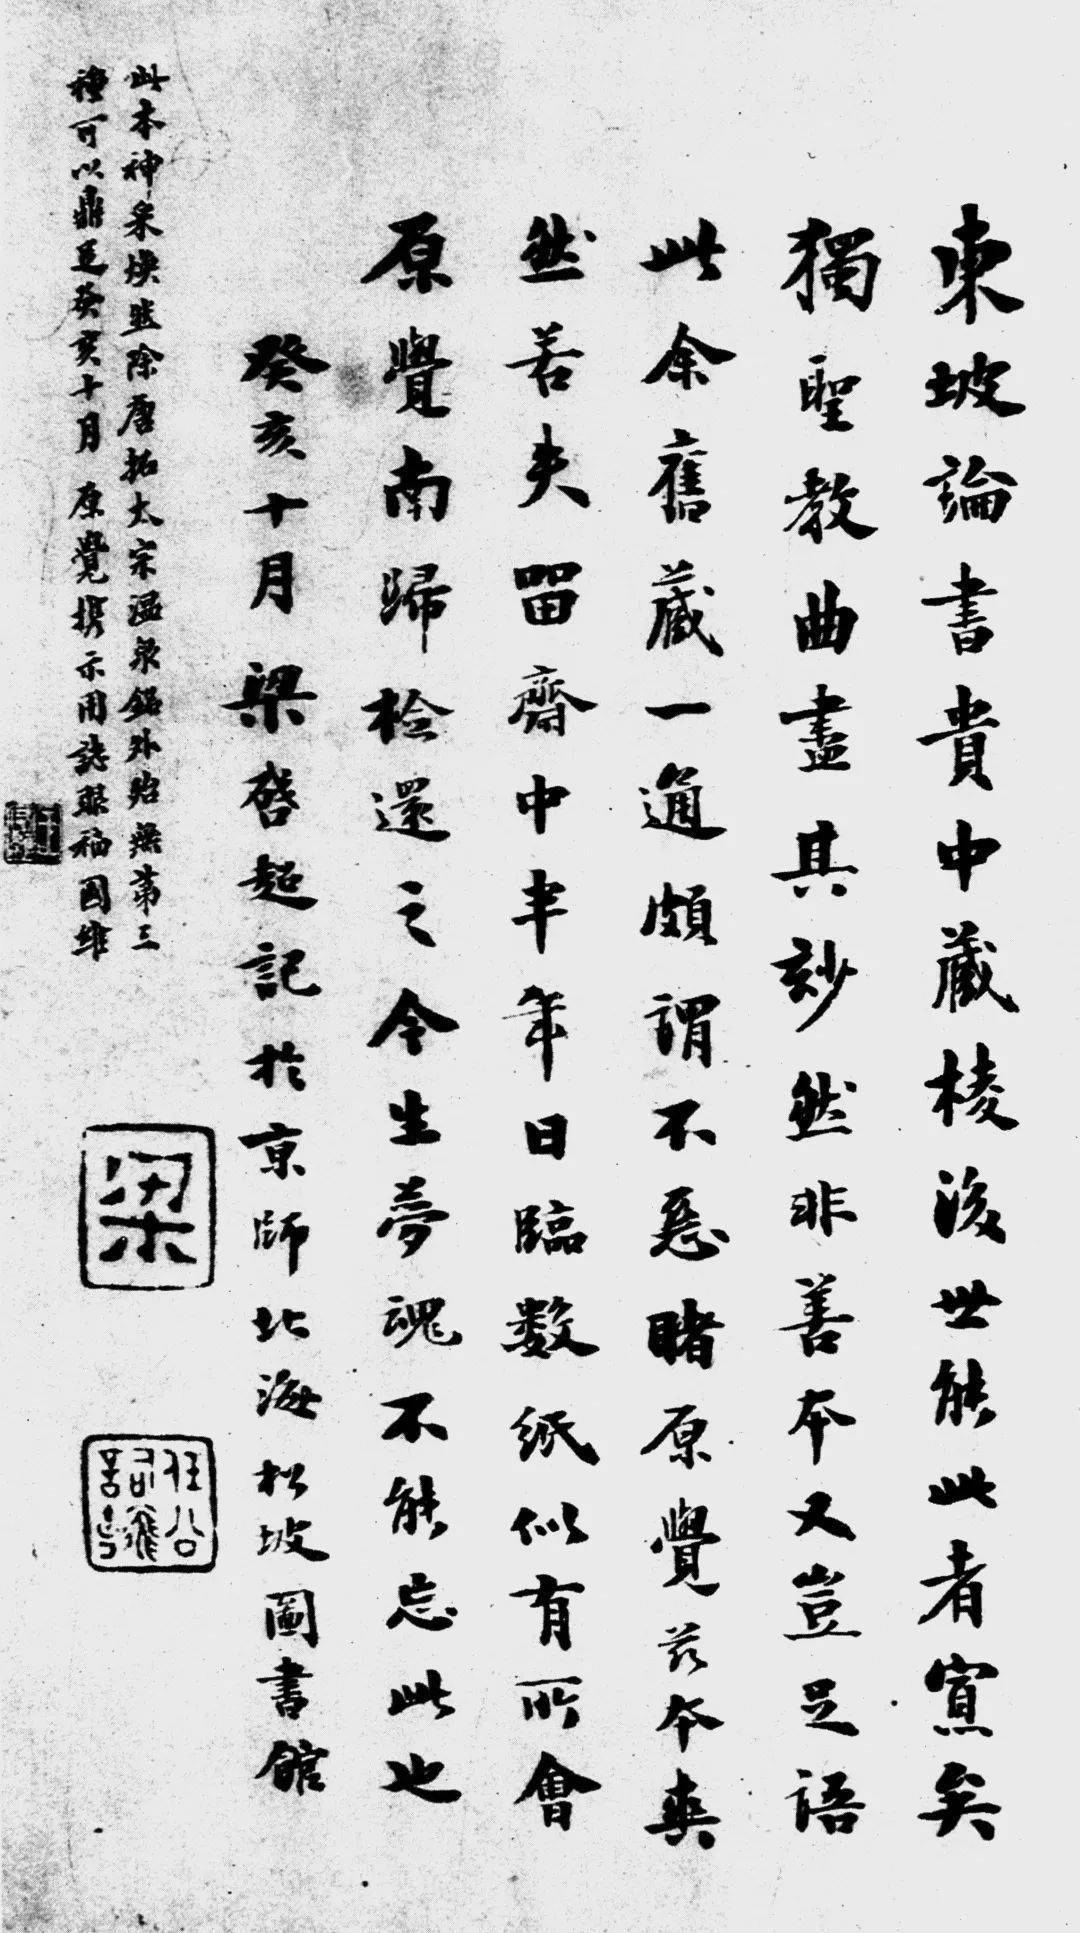 東坡論書貴中藏棱後世能此者寡矣
獨聖教曲盡其妙然非善本又豈足語
此余舊藏一通頗謂不惡睹原覺茲本爽
然若失留齋中半年日臨數紙似有所會
原覺南歸檢還之今生夢魂不能忘此也
癸亥十月梁啓超記於京師北海松坡圖書館
此本神采煥然除唐拓太宗溫泉銘外殆無第三
種可以鼎足癸亥十月原覺攜示用誌眼福國維
梁
任公